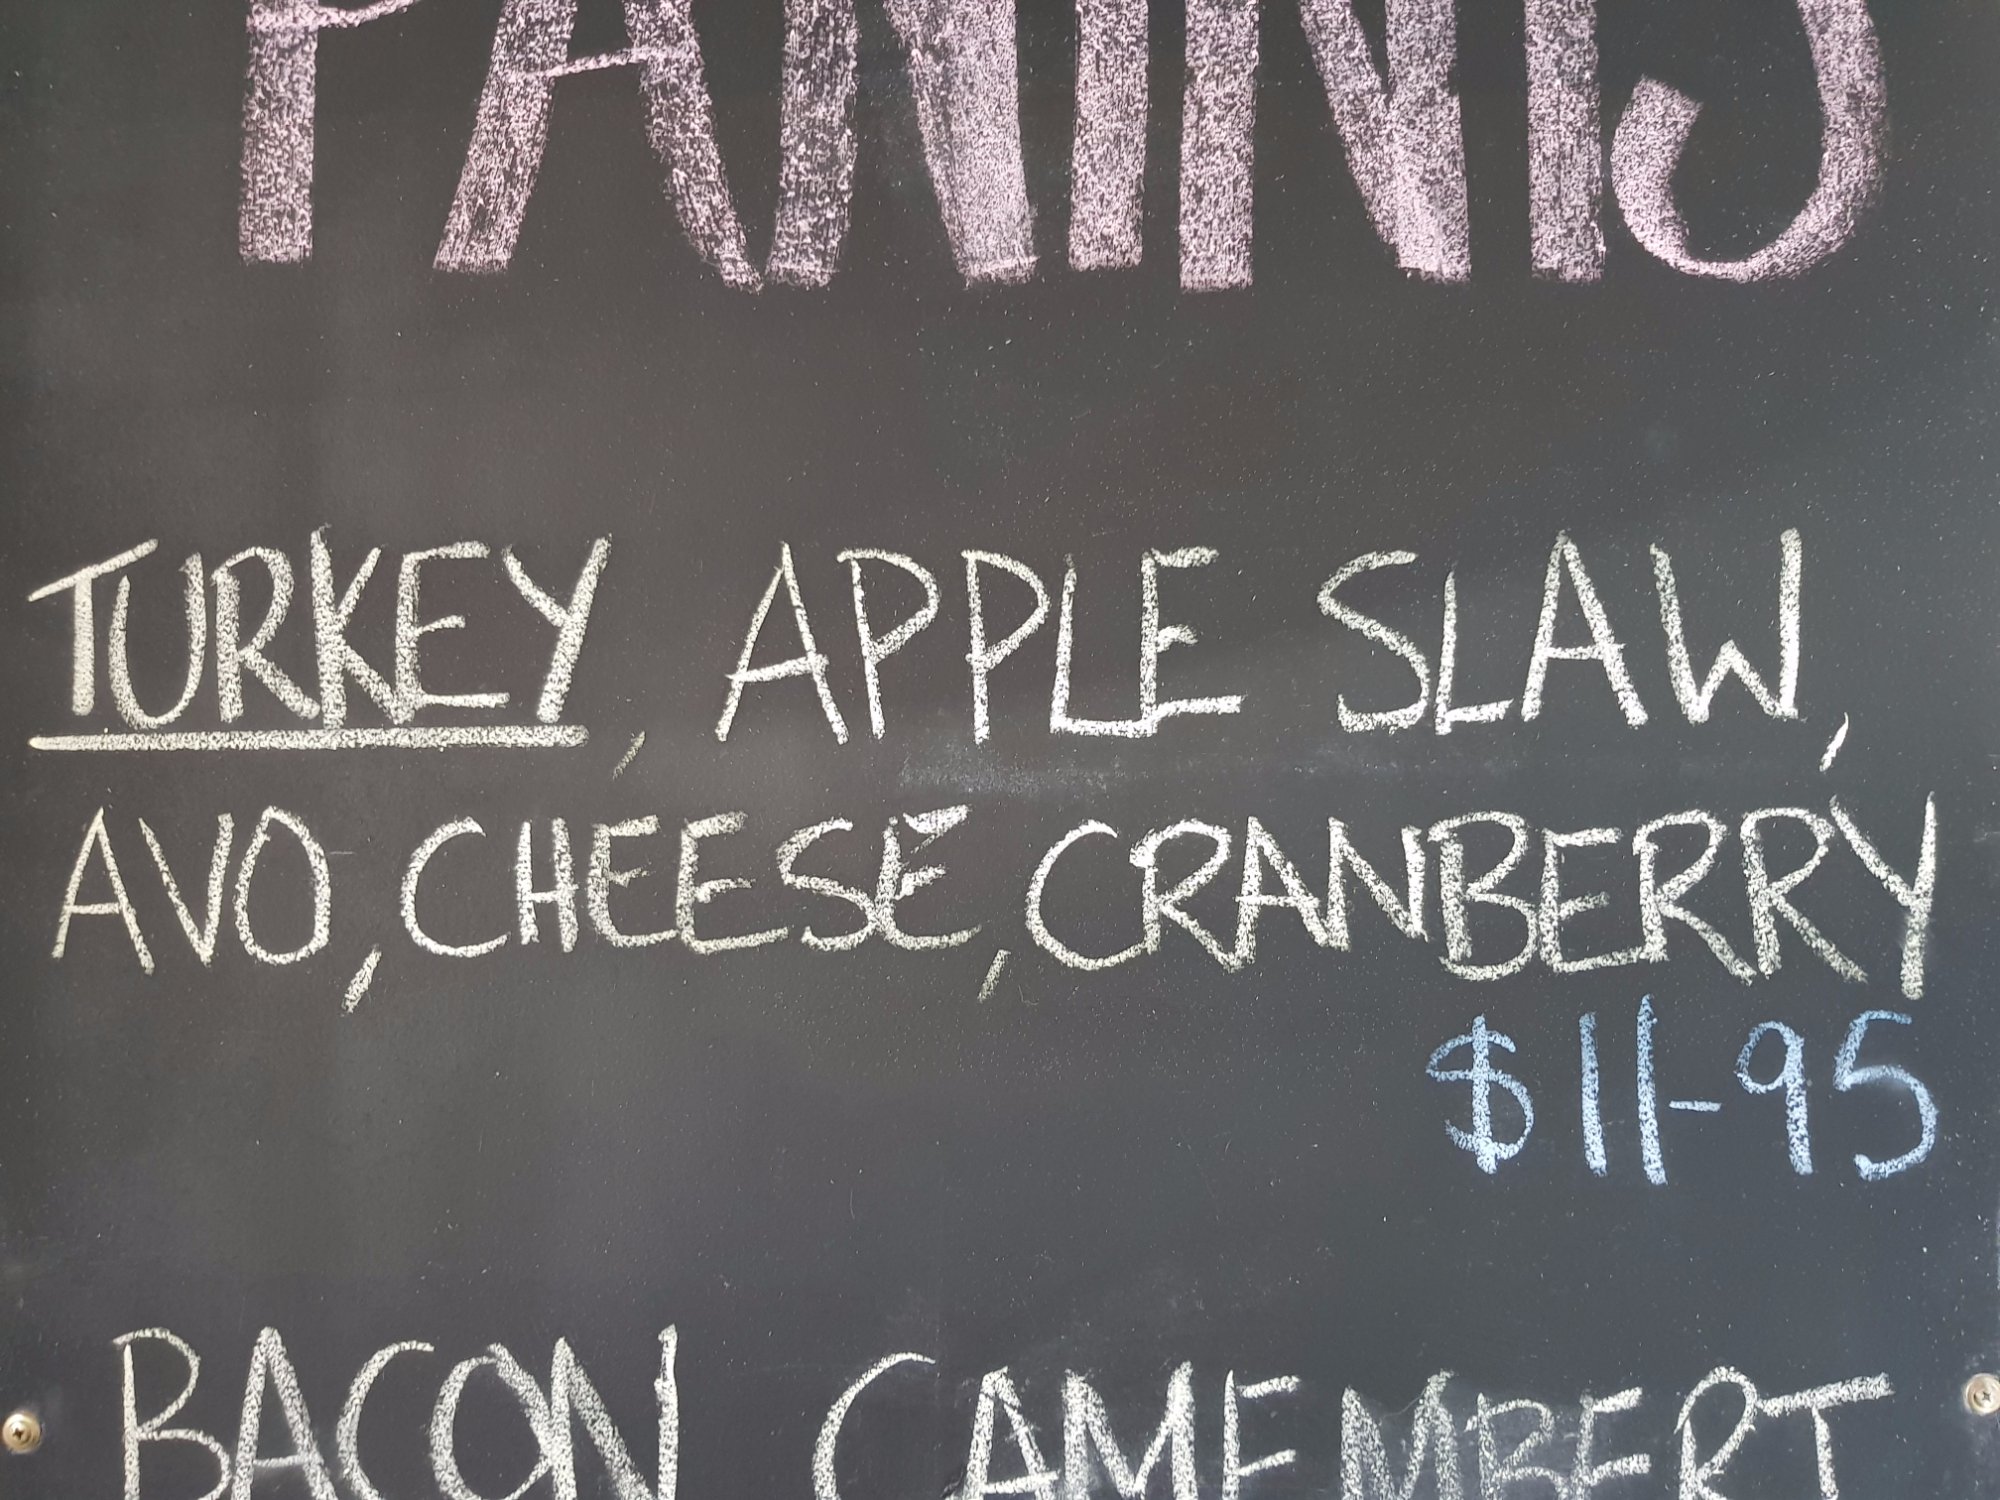 PANINIS
TURKEY, APPLE SLAW,
AVO, CHEESE, CRANBERRY
$11-95
BACON CAMEMBERT